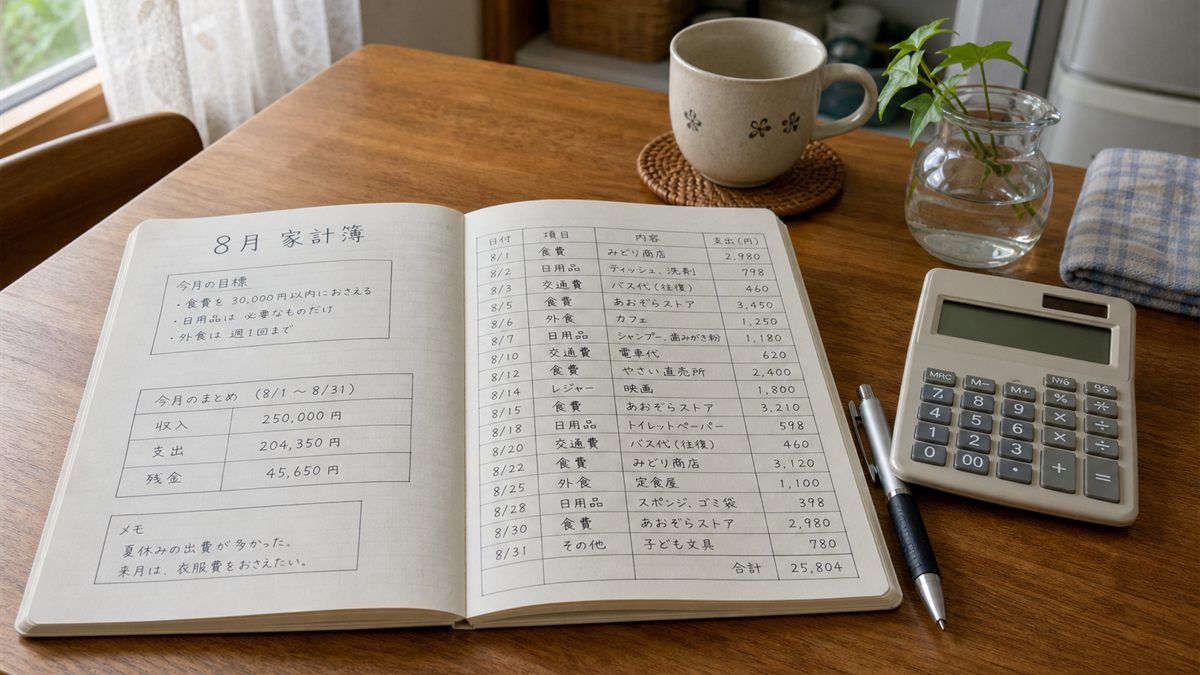 8月 家計簿
今月の目標
・食費を 30,000円以内におさえる
・日用品は 必要なものだけ
・外食は 週1回まで
今月のまとめ (8/1 〜 8/31)
収入 250,000 円
支出 204,350 円
残金 45,650 円
メモ
夏休みの出費が多かった。
来月は、衣服費をおさえたい。
日付 項目 内容 支出(円)
8/1 食費 みどり商店 2,980
8/2 日用品 ティッシュ、洗剤 798
8/3 交通費 バス代(往復) 460
8/5 食費 あおぞらストア 3,450
8/6 外食 カフェ 1,250
8/7 日用品 シャンプー、歯みがき粉 1,180
8/10 交通費 電車代 620
8/12 食費 やさい直売所 2,400
8/14 レジャー 映画 1,800
8/15 食費 あおぞらストア 3,210
8/18 日用品 トイレットペーパー 598
8/20 交通費 バス代(往復) 460
8/22 食費 みどり商店 3,120
8/25 外食 定食屋 1,100
8/28 日用品 スポンジ、ゴミ袋 398
8/30 食費 あおぞらストア 2,980
8/31 その他 子ども文具 780
合計 25,804
MRC M− M+ %
7 8 9 % ÷
4 5 6 × ÷
1 2 3 × ÷
0 00 • + =